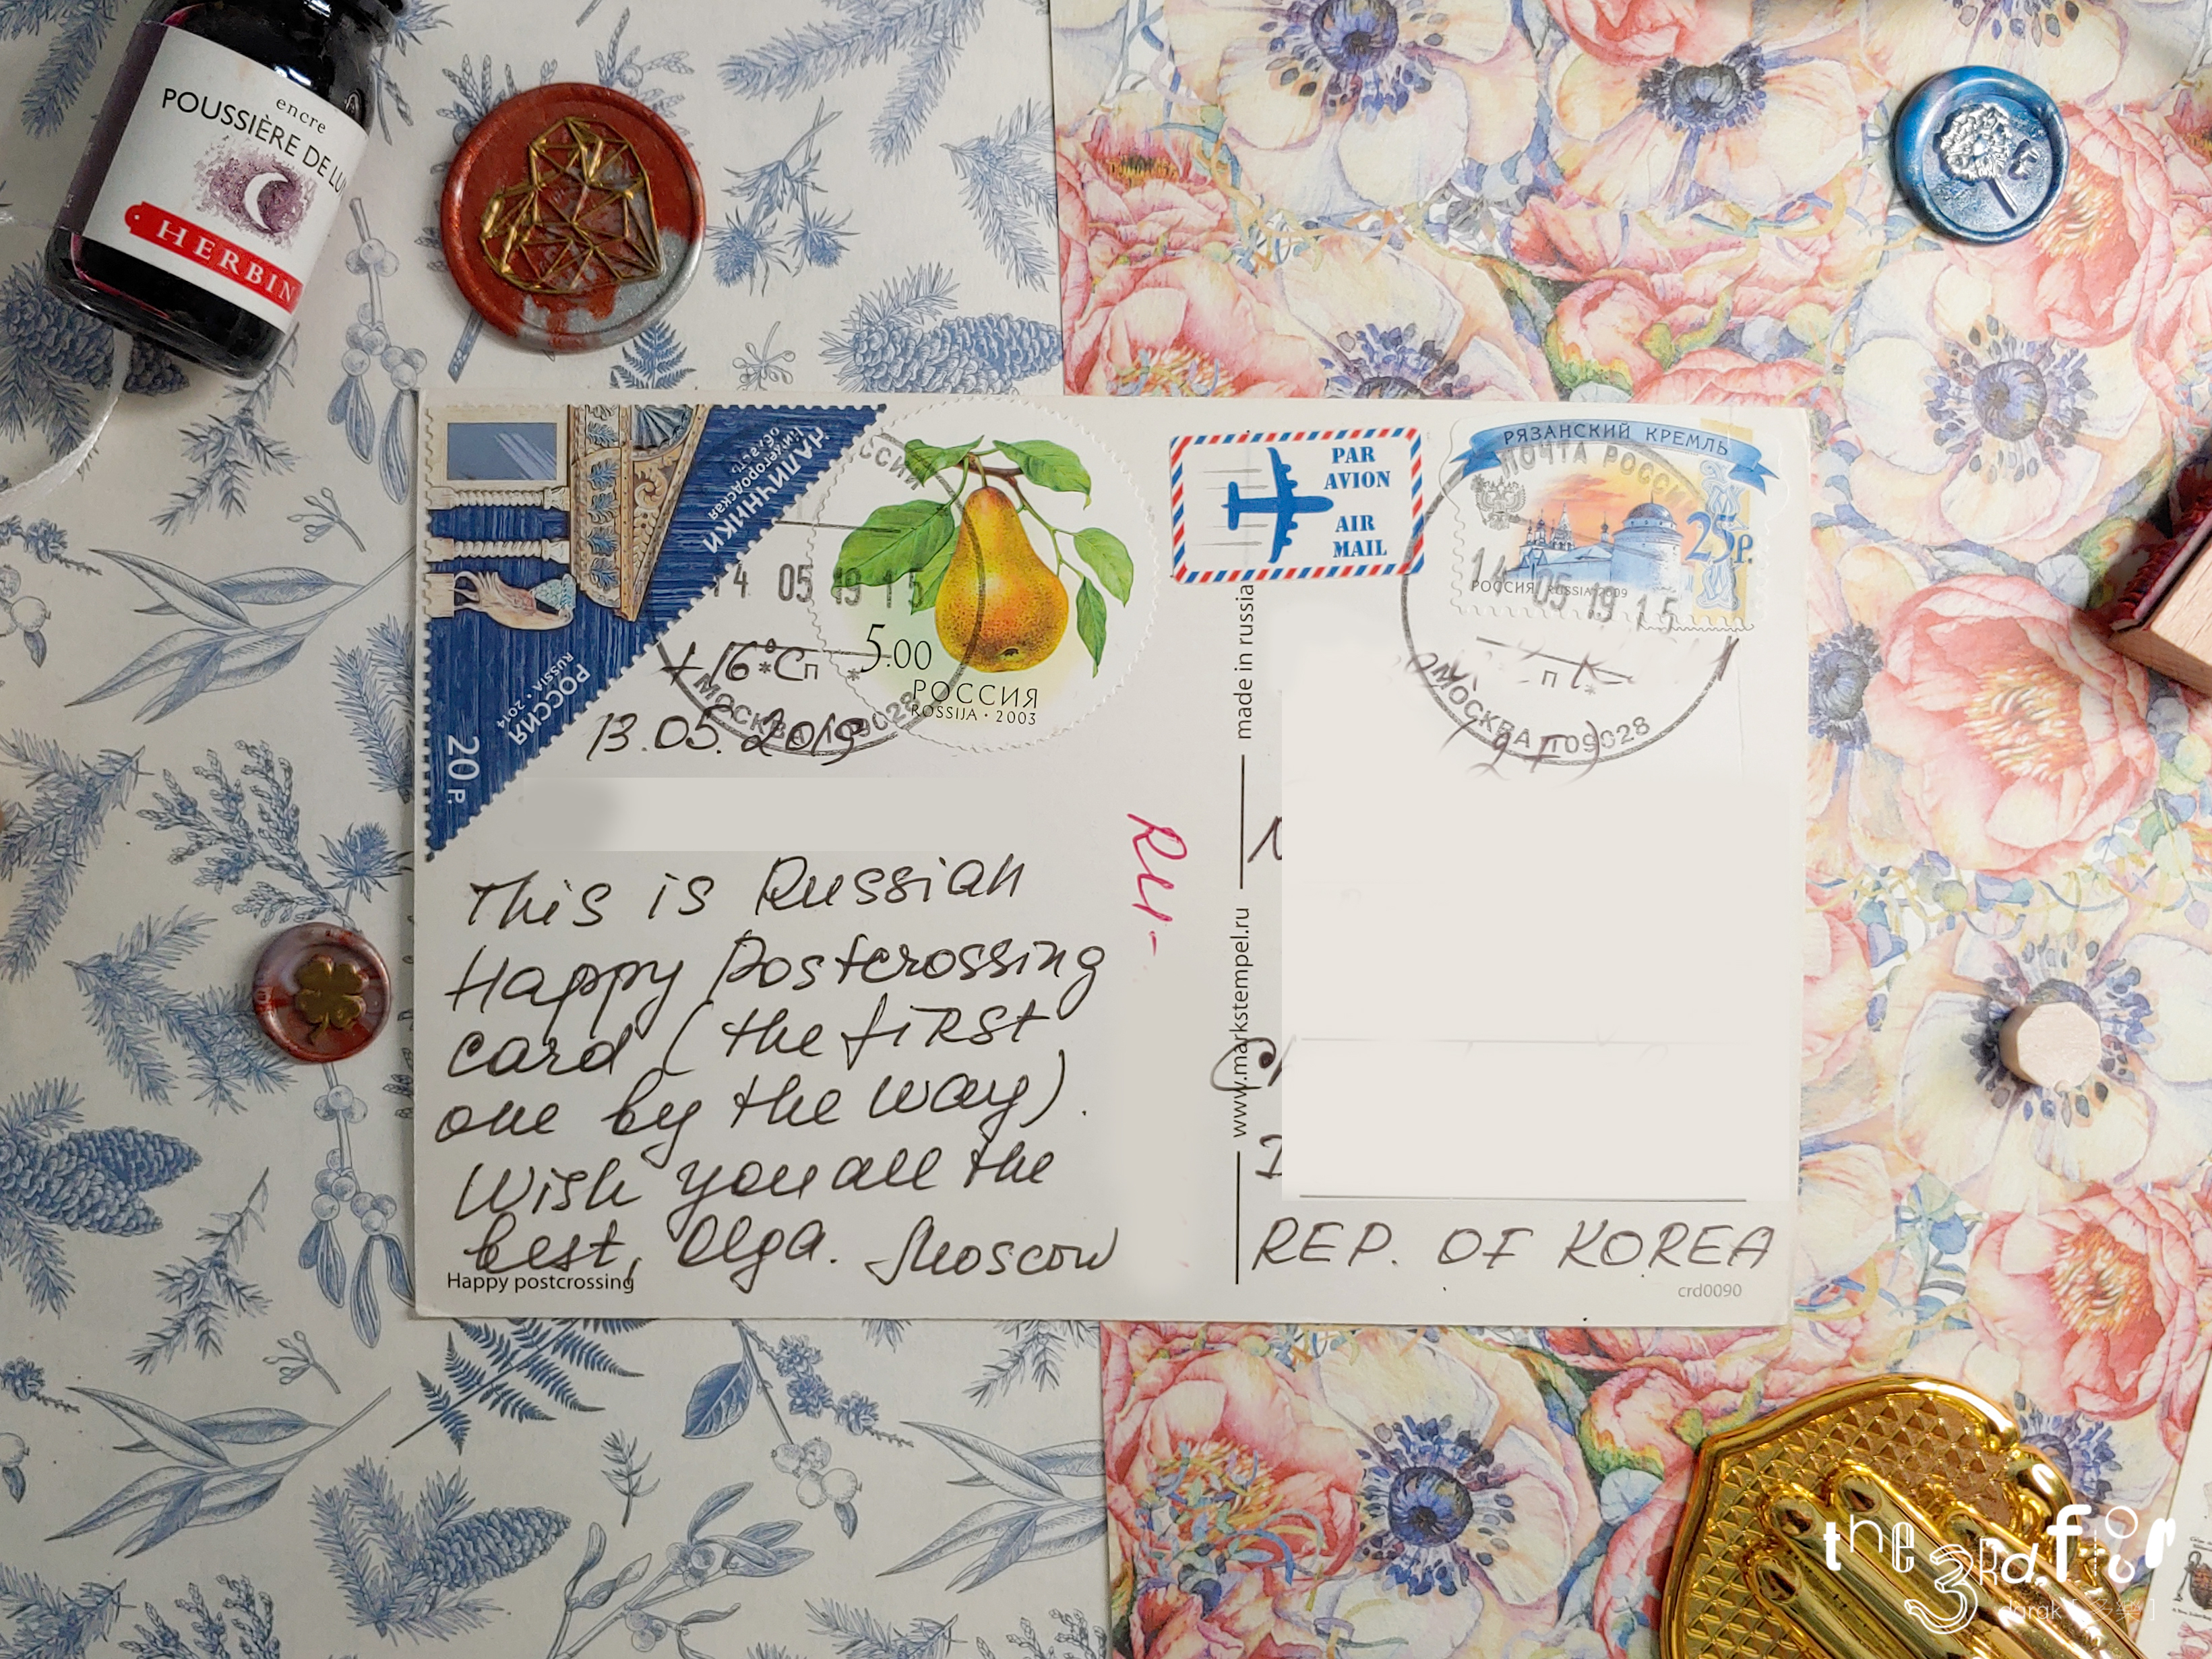 encre
POUSSIÈRE DE LU
HERBIN
НАЛИЧНИКИ
Нижегородская
область
РОССИЯ
RUSSIA • 2014
20 р.
ССИИ
14 05 19 15
МОСКВА 109028
5.00
РОССИЯ
ROSSIJA • 2003
PAR
AVION
AIR
MAIL
РЯЗАНСКИЙ КРЕМЛЬ
ПОЧТА РОССИИ
25р.
РОССИЯ RUSSIA 2009
14 05 19 15
п
МОСКВА 109028
+16°C
п
13.05.2019
This is Russian
Happy Postcrossing
card (the first
one by the way).
Wish you all the
best, Olga. Moscow
Happy postcrossing
RU-
www.markstempel.ru
made in russia
REP. OF KOREA
crd0090
the 3Rd.floor
darak